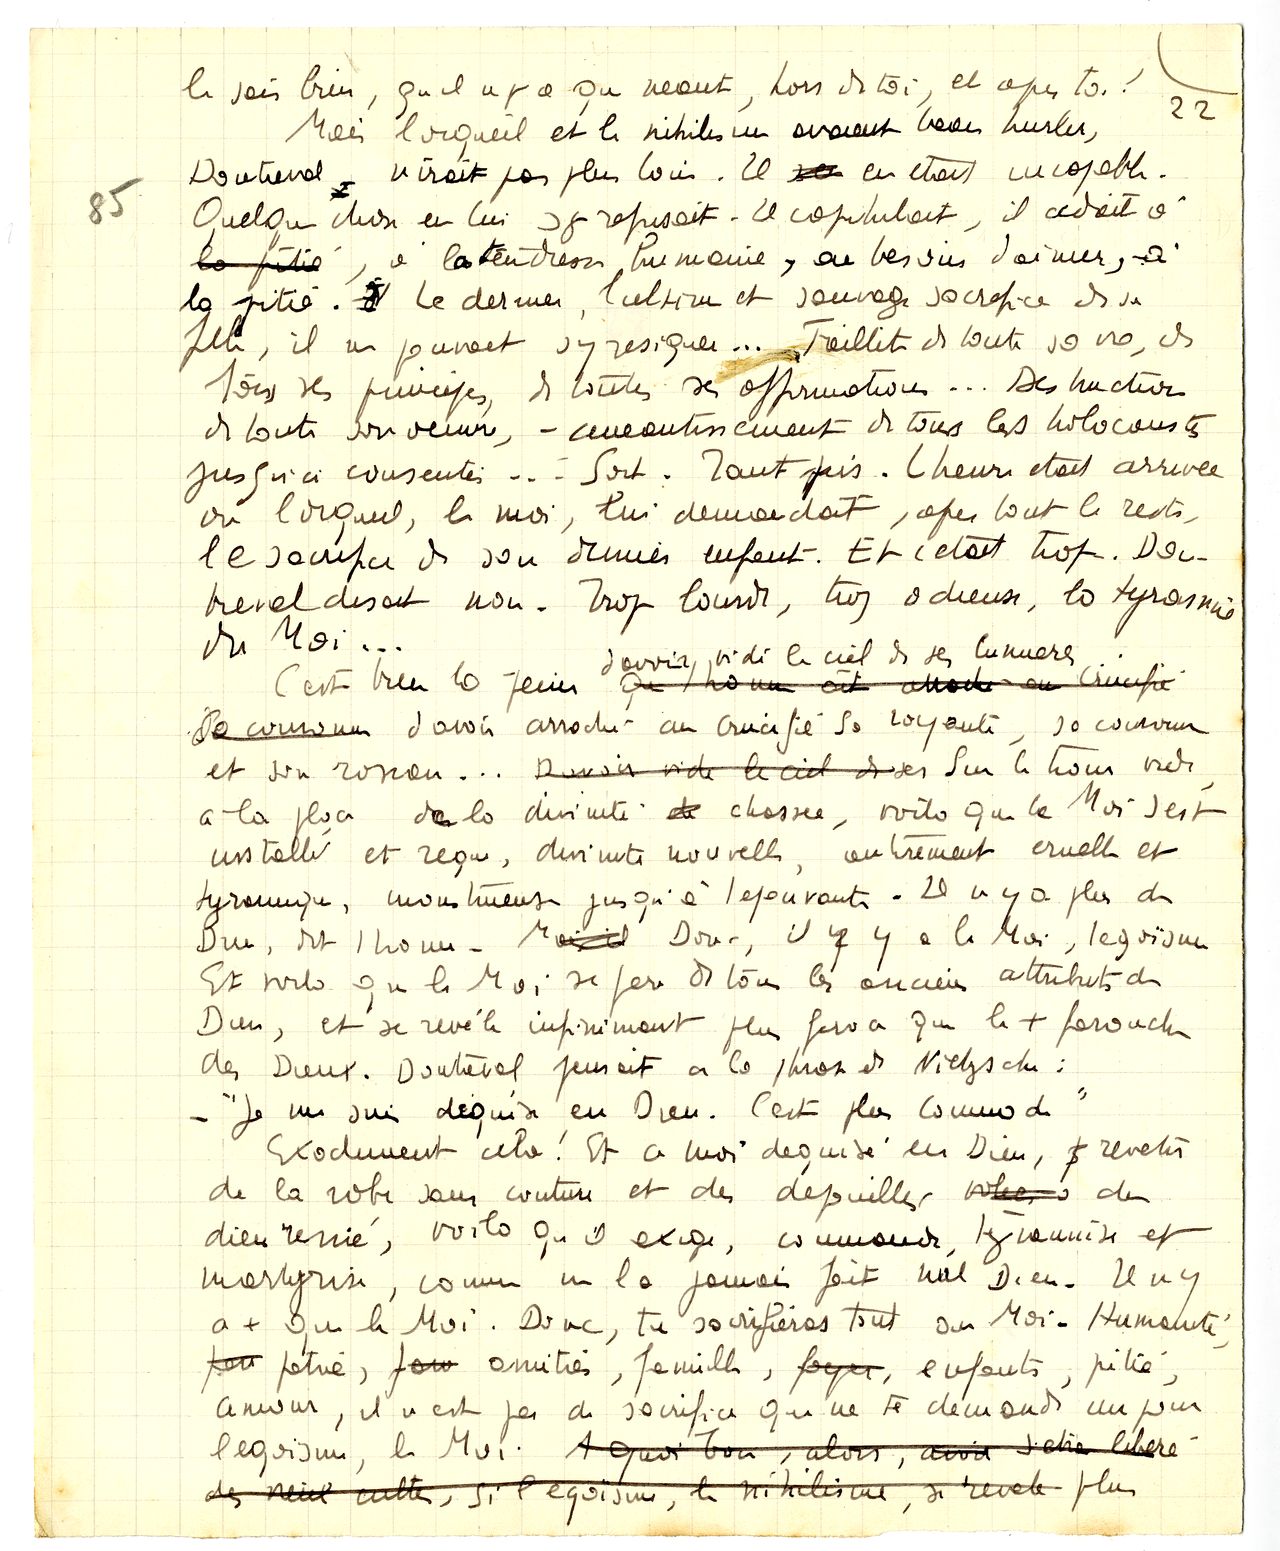 22
le sais bien, qu'il n'y a que néant, hors de toi, et après toi !
Mais l'orgueil et le nihilisme avaient beau hurler,
85
Doutreval n'irait pas plus loin. Il en était incapable.
Quelque chose en lui s'y refusait. Il capitulait, il cédait à
la pitié, à la tendresse humaine, au besoin d'aimer, à
la pitié. Le dernier, l'ultime et sauvage sacrifice de sa
fille, il ne pouvait s'y résigner... Faillite de toute sa vie, de
tous ses principes, de toutes ses affirmations... Destruction
de toute son œuvre, - anéantissement de tous les holocaustes
jusqu'ici consentis... - Soit. Tant pis. L'heure était arrivée
où l'orgueil, le moi, lui demandait, après tout le reste,
le sacrifice de son dernier enfant. Et c'était trop. Dou-
treval disait non. Trop lourde, trop odieuse, la tyrannie
du Moi...
d'avoir vidé le ciel de ses lumières
C'est bien la peine Que l'homme ait arraché au Crucifié
Sa couronne d'avoir arraché au Crucifié Sa royauté, sa couronne
et son roseau... D'avoir vidé le ciel de ses Sur le trône vide,
à la place de la divinité chassée, voilà que le Moi s'est
installé et règne, divinité nouvelle, autrement cruelle et
tyrannique, monstrueuse jusqu'à l'épouvante. Il n'y a plus de
Dieu, dit l'homme. Donc, il y a le Moi, l'égoïsme
Et voilà que le Moi se fera de tous les anciens attributs de
Dieu, et se révèle infiniment plus féroce que le + farouche
des Dieux. Doutreval pensait à la phrase de Nietzsche :
- "Je me suis déguisé en Dieu. C'est plus commode"
Exactement cela ! Et ce moi déguisé en Dieu, revêtu
de la robe sans couture et des dépouilles du
dieu renié, voilà qu'il exige, commande, tyrannise et
martyrise, comme ne l'a jamais fait nul Dieu. Il n'y
a + que le Moi. Donc, tu sacrifieras tout au Moi. Humanité,
patrie, amitiés, famille, foyer, enfants, pitié,
amour, il n'est pas de sacrifice que ne te demande un jour
l'égoïsme, le Moi. A quoi bon, alors, avoir s'être libéré
des vieux cultes, si l'égoïsme, le nihilisme, se révèle plus